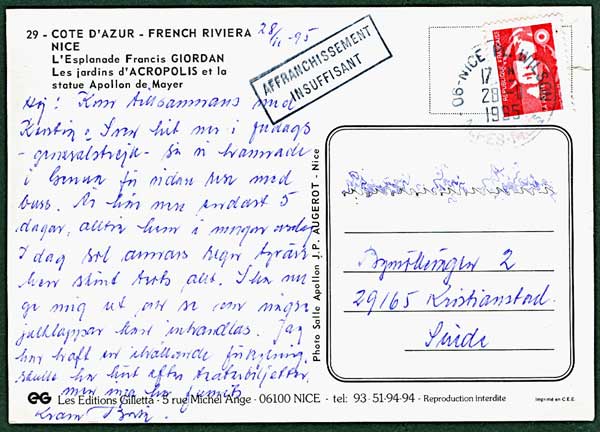 29 - COTE D'AZUR - FRENCH RIVIERA
NICE
L'Esplanade Francis GIORDAN
Les jardins d'ACROPOLIS et la
statue Apollon de Mayer
28/11-95
AFFRANCHISSEMENT
INSUFFISANT
06-NICE WILSON
17
28
1995
Hej! Kom tillsammans med
Kerstin hit ner i fredags
- generalstrejk - så vi hamnade
i Genua för vidare resa med
buss. Är här nere endast 5
dagar, alltså hem i morgon onsdag
I dag sol annars seger
men skönt trots allt. Ska nu
ge mig ut och se om några
julklappar kan inhandlas. Jag
har haft en ihållande förkylning
skulle ha hört efter teaterbiljetter
men
Kram
Bymöllingen 2
29165 Kristianstad
Suède
Photo Salle Apollon J.P. AUGEROT - Nice
Les Editions Gilletta - 5 rue Michel Ange - 06100 NICE - tel: 93-51-94-94 - Reproduction Interdite
Imprimé en C.E.E.